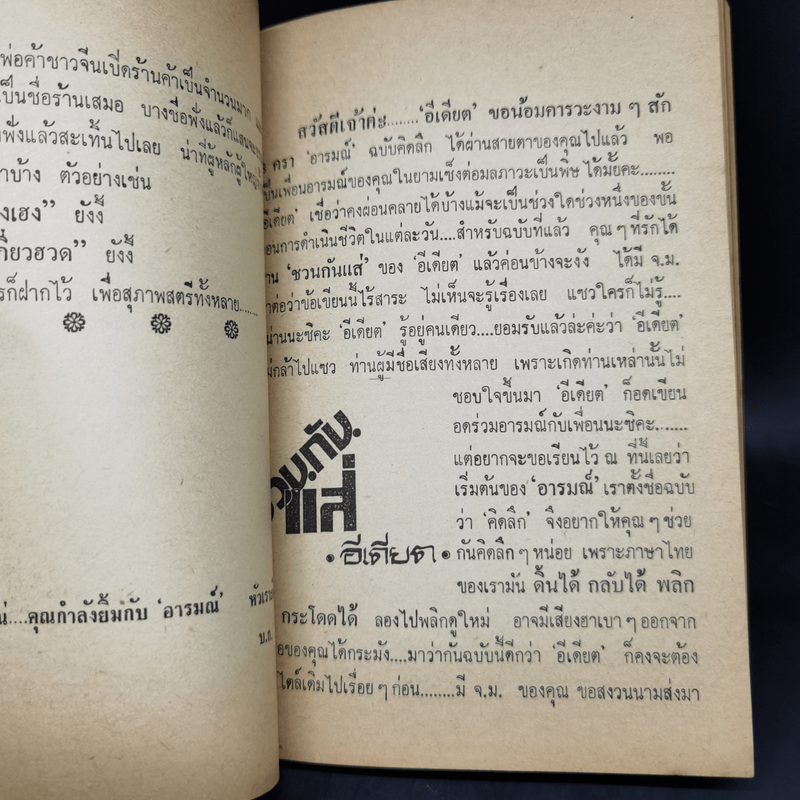 พ่อค้าชาวจีนเปิดร้านค้าเป็นจำนวนมาก
เป็นชื่อร้านเสมอ บางชื่อฟังแล้วก็แสน
ฟังแล้วสะเทิ้นไปเลย น่าที่ผู้หลักผู้ใหญ่
บ้าง ตัวอย่างเช่น
เฮง” ยังงี้
เกี๊ยวฮวด” ยังงี้
ก็ฝากไว้ เพื่อสุภาพสตรีทั้งหลาย......
....คุณกำลังยิ้มกับ ‘อารมณ์’
สวัสดีเจ้าค่ะ........‘อีเดียต’ ขอน้อมคารวะงาม ๆ สัก
ครา ‘อารมณ์’ ฉบับคิดลึก ได้ผ่านสายตาของคุณไปแล้ว พอ
เป็นเพื่อนอารมณ์ของคุณในยามเซ็งต่อมลภาวะเป็นพิษ ได้มั้ยคะ........
‘อีเดียต’ เชื่อว่าคงผ่อนคลายได้บ้างแม้จะเป็นช่วงใดช่วงหนึ่งของขั้น
ตอนการดำเนินชีวิตในแต่ละวัน....สำหรับฉบับที่แล้ว คุณ ๆ ที่รักได้
‘ชวนกันแส่’ ของ ‘อีเดียต’ แล้วค่อนข้างจะงง ได้มี จ.ม.
ต่อว่าข้อเขียนนี้ไร้สาระ ไม่เห็นจะรู้เรื่องเลย แซวใครก็ไม่รู้....
น่านนะซิคะ ‘อีเดียต’ รู้อยู่คนเดียว....ยอมรับแล้วล่ะค่ะว่า ‘อีเดียต’
กล้าไปแซว ท่านผู้มีชื่อเสียงทั้งหลาย เพราะเกิดท่านเหล่านั้นไม่
ชอบใจขึ้นมา ‘อีเดียต’ ก็อดเขียน
อดร่วมอารมณ์กับเพื่อนนะซิคะ........
แต่อยากจะขอเรียนไว้ ณ ที่นี้เลยว่า
เริ่มต้นของ ‘อารมณ์’ เราตั้งชื่อฉบับ
ว่า ‘คิดลึก’ จึงอยากให้คุณ ๆ ช่วย
กันคิดลึก ๆ หน่อย เพราะภาษาไทย
ของเรามัน ดิ้นได้ กลับได้ พลิก
ชวนกัน
แส่
• อีเดียต •
กระโดดได้ ลองไปพลิกดูใหม่ อาจมีเสียงฮาเบา ๆ ออกจาก
ของคุณได้กระมัง....มาว่ากันฉบับนี้ดีกว่า ‘อีเดียต’ ก็คงจะต้อง
สไตล์เดิมไปเรื่อย ๆ ก่อน........มี จ.ม. ของคุณ ขอสงวนนามส่งมา